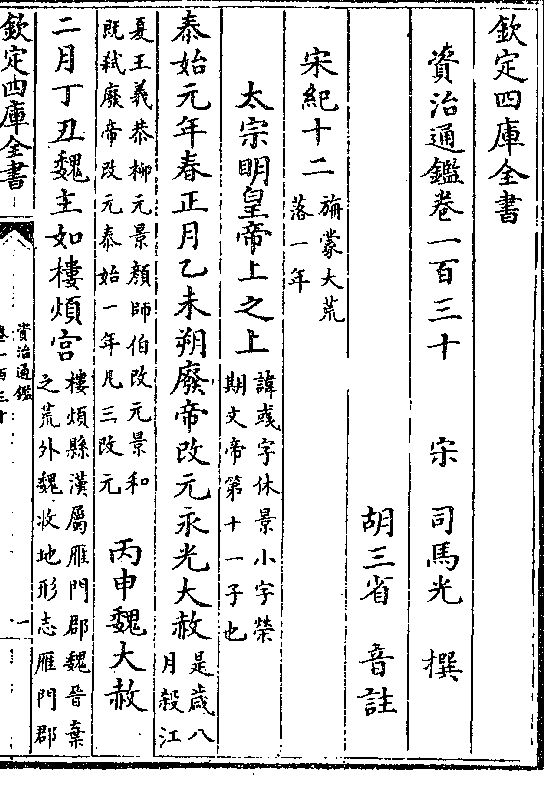 欽定四庫全書
資治通鑑卷一百三十
宋 司馬光 撰
胡三省 音註
宋紀十二
旃蒙大荒
落一年
太宗明皇帝上之上
諱彧字休景小字榮
期文帝第十一子也
泰始元年春正月乙未朔廢帝改元永光大赦
是歲八
月殺江
夏王義恭柳元景顏師伯改元景和
既弑廢帝改元泰始一年凡三改元
丙申魏大赦
二月丁丑魏主如樓煩宮
樓煩縣漢屬雁門郡魏晉棄
之荒外魏收地形志雁門郡
欽定四庫全書
資治通鑑
卷一百三十
一